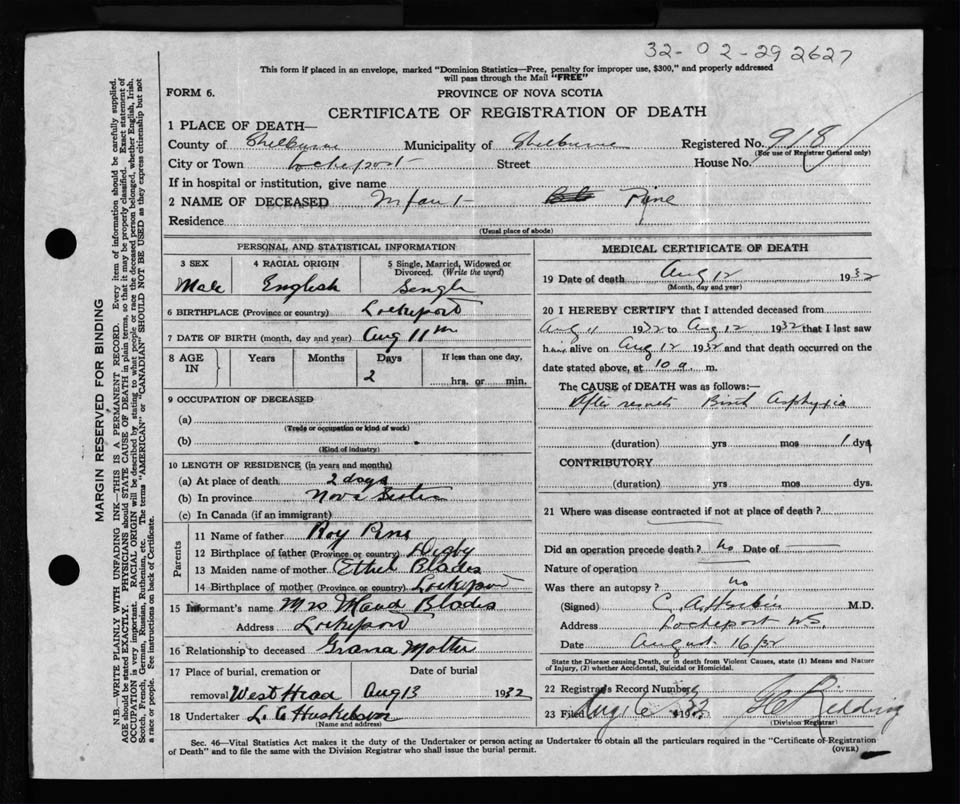 32-02-29 2627
This form if placed in an envelope, marked "Dominion Statistics—Free, penalty for improper use, $300," and properly addressed
will pass through the Mail "FREE"
FORM 6.
PROVINCE OF NOVA SCOTIA
CERTIFICATE OF REGISTRATION OF DEATH
1 PLACE OF DEATH—
County of Shelburne Municipality of Shelburne Registered No. 918
(For use of Registrar General only)
City or Town Lockeport Street House No.
If in hospital or institution, give name
2 NAME OF DECEASED Infant Pyne
Residence
(Usual place of abode)
PERSONAL AND STATISTICAL INFORMATION
3 SEX 4 RACIAL ORIGIN 5 Single, Married, Widowed or
Divorced. (Write the word)
Male English Single
6 BIRTHPLACE (Province or country) Lockeport
7 DATE OF BIRTH (month, day and year) Aug 11th
8 AGE IN Years Months Days If less than one day,
2 hrs. or min.
9 OCCUPATION OF DECEASED
(a)
(Trade or occupation or kind of work)
(b)
(Kind of industry)
10 LENGTH OF RESIDENCE (in years and months)
(a) At place of death 2 days
(b) In province Nova Scotia
(c) In Canada (if an immigrant)
Parents
11 Name of father Roy
12 Birthplace of father (Province or country) Digby
13 Maiden name of mother Ethel Blades
14 Birthplace of mother (Province or country) Lockeport
15 Informant's name Mrs Maud Blades
Address Lockeport
16 Relationship to deceased Grand Mother
17 Place of burial, cremation or Date of burial
removal West Head Aug 13 1932
18 Undertaker L. C
(Name and address)
MEDICAL CERTIFICATE OF DEATH
19 Date of death Aug 12 1932
(Month, day and year)
20 I HEREBY CERTIFY that I attended deceased from
Aug 11 1932 to Aug 12 1932 that I last saw
him alive on Aug 12 1932 and that death occurred on the
date stated above, at 10 a. m.
The CAUSE of DEATH was as follows:—
After Birth Asphyxia
(duration) yrs mos 1 dys
CONTRIBUTORY
(duration) yrs mos dys.
21 Where was disease contracted if not at place of death?
Did an operation precede death? no Date of
Nature of operation
Was there an autopsy? no
(Signed) C. A. M.D.
Address Lockeport N.S.
Date August 16/32
State the Disease causing Death, or in death from Violent Causes, state (1) Means and Nature
of Injury, (2) whether Accidental, Suicidal or Homicidal.
22 Registrar's Record Number
23 Filed Redding
(Division Registrar)
Sec. 46—Vital Statistics Act makes it the duty of the Undertaker or person acting as Undertaker to obtain all the particulars required in the "Certificate of Registration
of Death" and to file the same with the Division Registrar who will issue the burial permit.
(OVER)
MARGIN RESERVED FOR BINDING
N.B.—WRITE PLAINLY WITH UNFADING INK—THIS IS A PERMANENT RECORD. Every item of information should be carefully supplied.
AGE should be stated EXACTLY. PHYSICIANS should STATE CAUSE OF DEATH in plain terms, so that it may be properly classified. Exact statement of
OCCUPATION is very important. RACIAL ORIGIN will be described by stating to what people or race the deceased person belonged, whether English, Irish,
Scotch, French, German, Russian, Ruthenian, etc. The terms "AMERICAN" or "CANADIAN" SHOULD NOT BE USED as they express citizenship but not
a race or people. See instructions on back of Certificate.